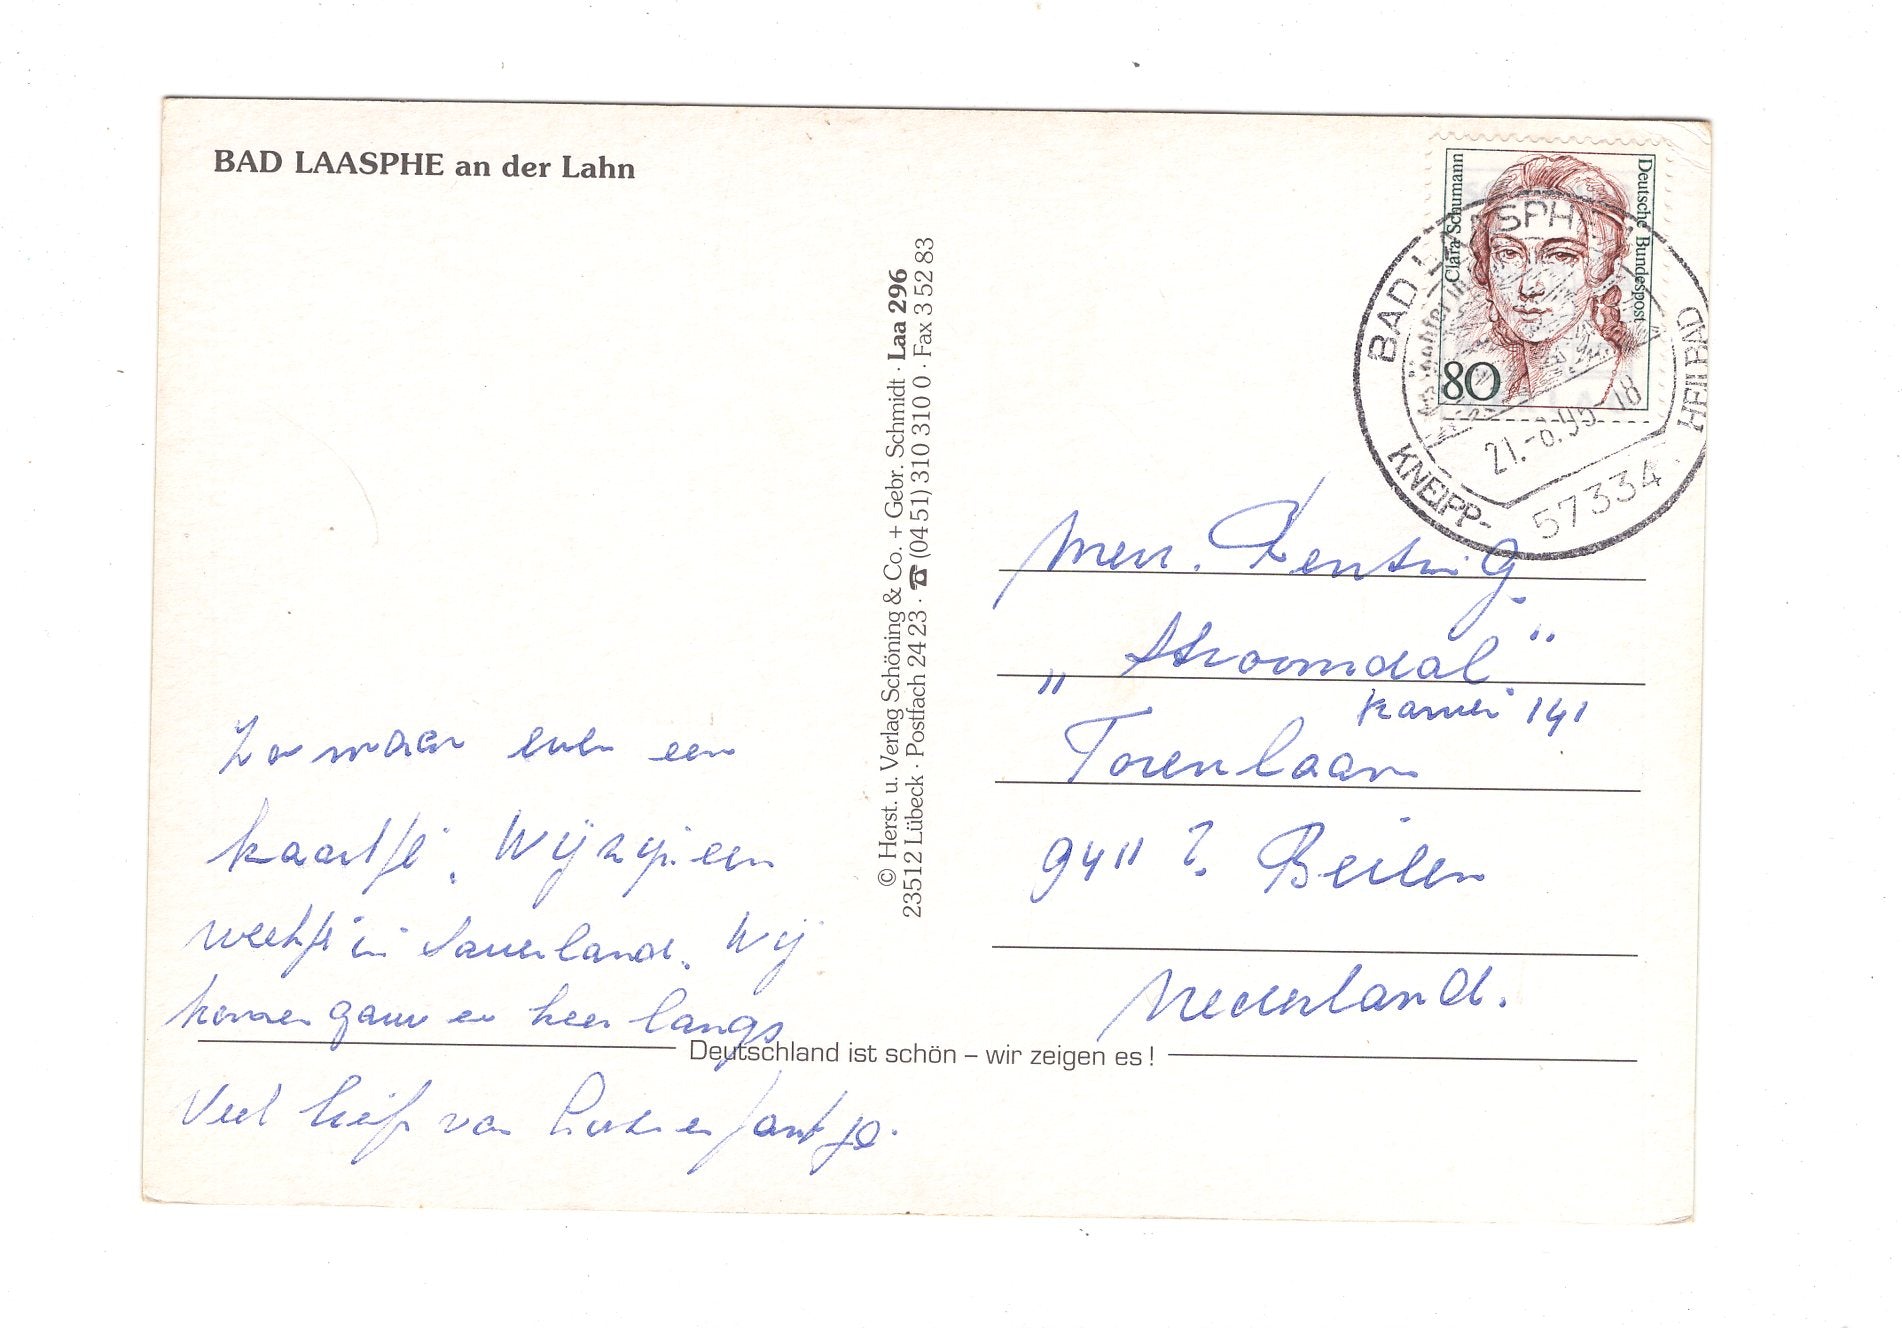 BAD LAASPHE an der Lahn
Clara Schumann
Deutsche Bundespost
80
BAD LAASPHE
21.-8.95-18
KNEIPP-
HEILBAD
57334
© Herst. u. Verlag Schöning & Co. + Gebr. Schmidt · Laa 296
23512 Lübeck · Postfach 24 23 · ☎ (04 51) 310 310 0 · Fax 3 52 83
Zo maar even een
kaartje. Wij zijn een
weekje in Sauerland. Wij
komen gauw en keer langs
Veel liefs van en Jantje.
Mevr.
"Stroomdal"
kamer 141
Torenlaan
9411 Beilen
Nederland.
Deutschland ist schön – wir zeigen es !